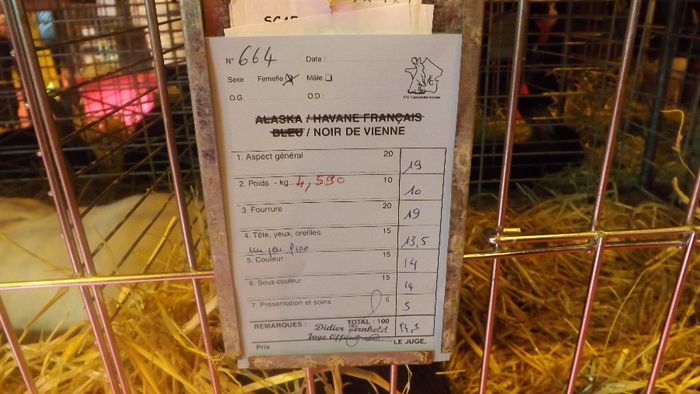 N° 664 Date :
Sexe Femelle Mâle
O.G. O.D :
ALASKA / HAVANE FRANÇAIS
BLEU / NOIR DE VIENNE
1. Aspect général 20 19
2. Poids - kg... 4,590 10 10
3 Fourrure 20 19
4. Tête, yeux, oreilles 15 13,5
un peu fine
5. Couleur 15 14
6. Sous-couleur 15 14
7. Présentation et soins 5 5
REMARQUES : TOTAL : 100 94,5
Didier
Juge LE JUGE,
Prix